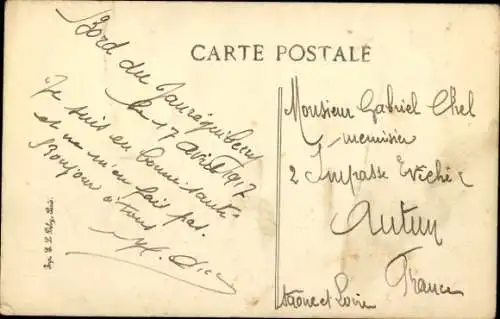 CARTE POSTALE
Bord du Jauréguiberry
le 17 avril 1917
Je suis en bonne santé
et ne m'en fait pas.
Bonjour à tous
Monsieur Gabriel
menuisier
2 Impasse Evêché
Autun
Saone et Loire
France
Imp.